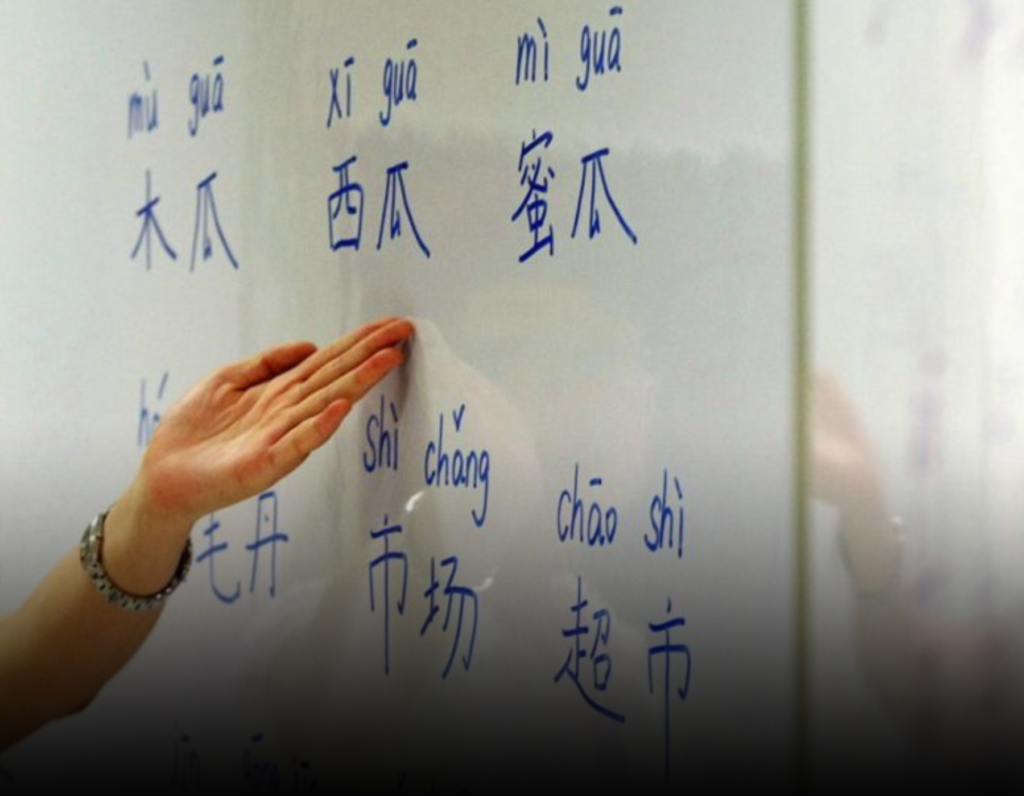 mù guā xī guā mì guā
木瓜 西瓜 蜜瓜
shì chǎng chāo shì
毛丹 市场 超市